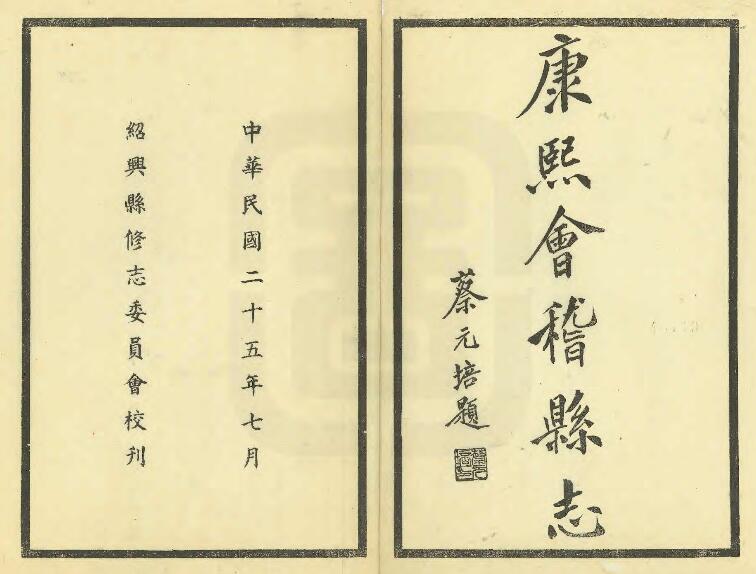 康熙會稽縣志
蔡元培題
中華民國二十五年七月
紹興縣修志委員會校刊